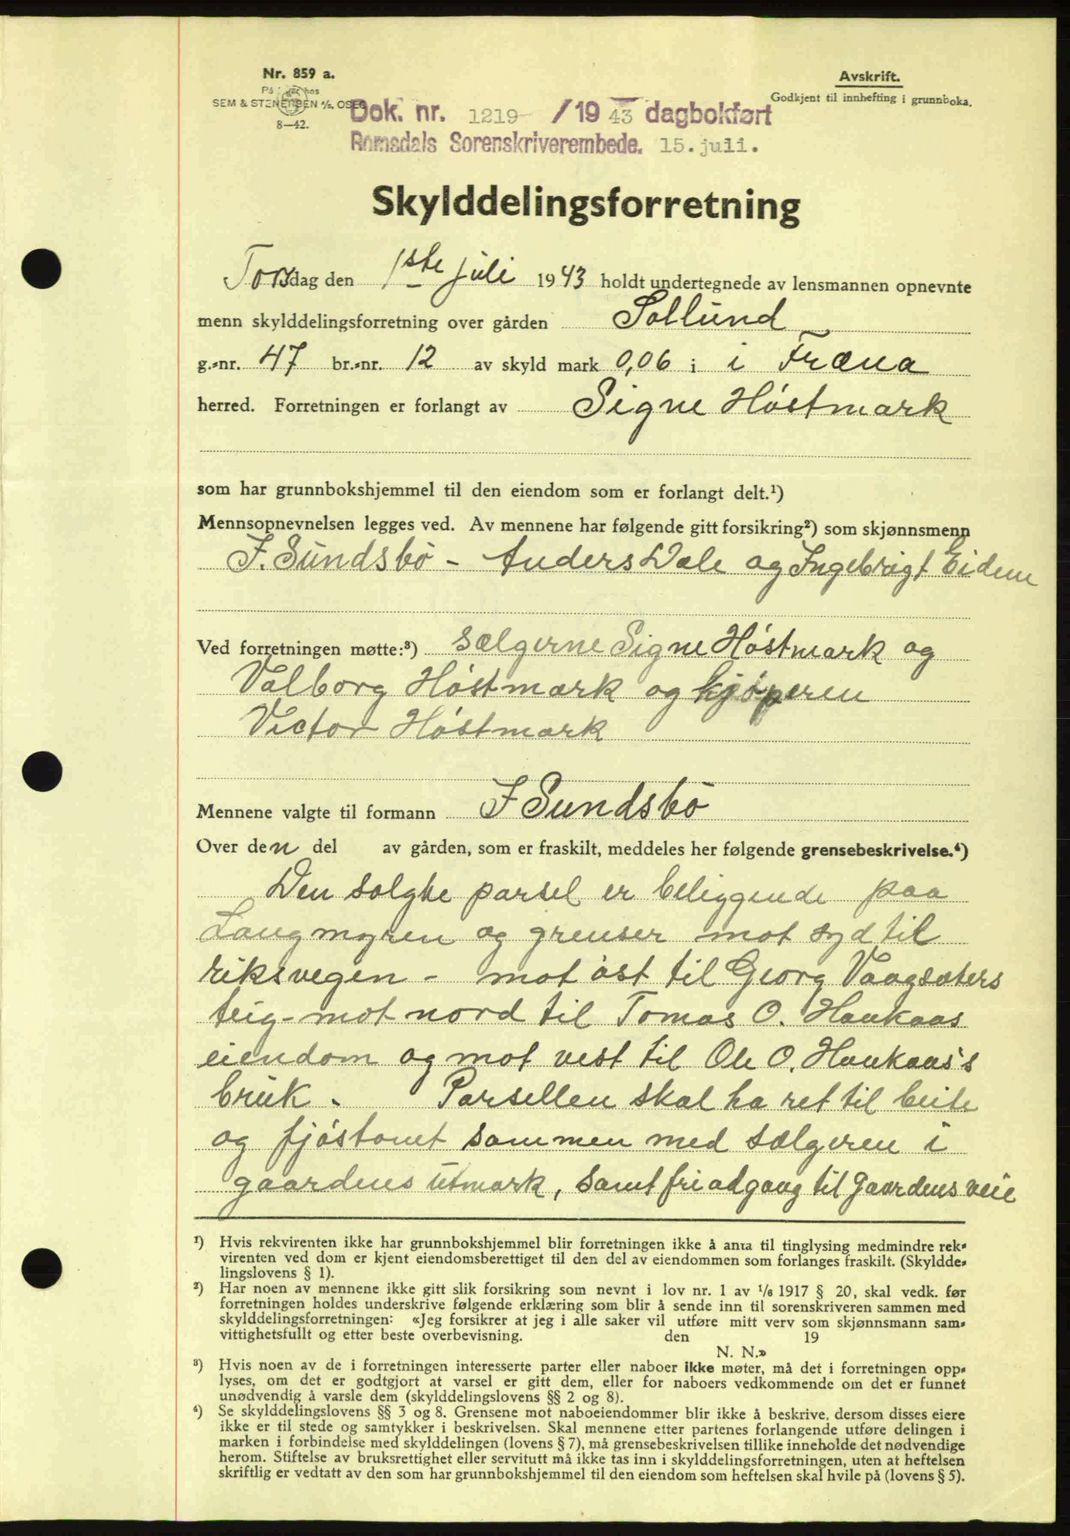 Nr. 859 a.
SEM & STENERSEN A/S, OSLO
8—42.
Avskrift.
Godkjent til innhefting i grunnboka.
Dok. nr. 1219 /1943 dagbokført
Romsdals Sorenskriverembede. 15. juli.
Skylddelingsforretning
Torsdag den 1ste juli 1943 holdt undertegnede av lensmannen opnevnte
menn skylddelingsforretning over gården Sollund
g.-nr. 47 br.-nr. 12 av skyld mark 0,06 i i Fræna
herred. Forretningen er forlangt av Signe Høstmark
som har grunnbokshjemmel til den eiendom som er forlangt delt.¹)
Mennsopnevnelsen legges ved. Av mennene har følgende gitt forsikring²) som skjønnsmenn
J. Sundsbö - Anders Dale og Ingebrigt Eidem
Ved forretningen møtte:³) sælgerne Signe Høstmark og
Valborg Høstmark og kjøperen
Victor Høstmark
Mennene valgte til formann J Sundsbö
Over den del av gården, som er fraskilt, meddeles her følgende grensebeskrivelse.⁴)
Den solgte parsel er beliggende paa
Langmyren og grenser mot syd til
riksvegen - mot øst til Georg Vaagsæters
teig - mot nord til Tomas O. Haukaas
eiendom og mot vest til Ole O. Haukaas's
bruk. Parsellen skal ha ret til beite
og fjøstomt sammen med sælgeren i
gaardens utmark, samt fri adgang til Gaardens veie
¹) Hvis rekvirenten ikke har grunnbokshjemmel blir forretningen ikke å anta til tinglysing medmindre rek-
virenten ved dom er kjent eiendomsberettiget til den del av eiendommen som forlanges fraskilt. (Skyldde-
lingslovens § 1).
²) Har noen av mennene ikke gitt slik forsikring som nevnt i lov nr. 1 av ¹/₆ 1917 § 20, skal vedk. før
forretningen holdes underskrive følgende erklæring som blir å sende inn til sorenskriveren sammen med
skylddelingsforretningen: «Jeg forsikrer at jeg i alle saker vil utføre mitt verv som skjønnsmann sam-
vittighetsfullt og etter beste overbevisning. den 19
N. N.»
³) Hvis noen av de i forretningen interesserte parter eller naboer ikke møter, må det i forretningen opp-
lyses, om det er godtgjort at varsel er gitt dem, eller for naboers vedkommende om det er funnet
unødvendig å varsle dem (skylddelingslovens §§ 2 og 8).
⁴) Se skylddelingslovens §§ 3 og 8. Grensene mot naboeiendommer blir ikke å beskrive, dersom disses eiere
ikke er til stede og samtykker i beskrivelsen. Skal mennene etter partenes forlangende utføre delingen i
marken i forbindelse med skylddelingen (lovens § 7), må grensebeskrivelsen tillike inneholde det nødvendige
herom. Stiftelse av bruksrettighet eller servitutt må ikke tas inn i skylddelingsforretningen, uten at heftelsen
skriftlig er vedtatt av den som har grunnbokshjemmel til den eiendom som heftelsen skal hvile på (lovens § 5).